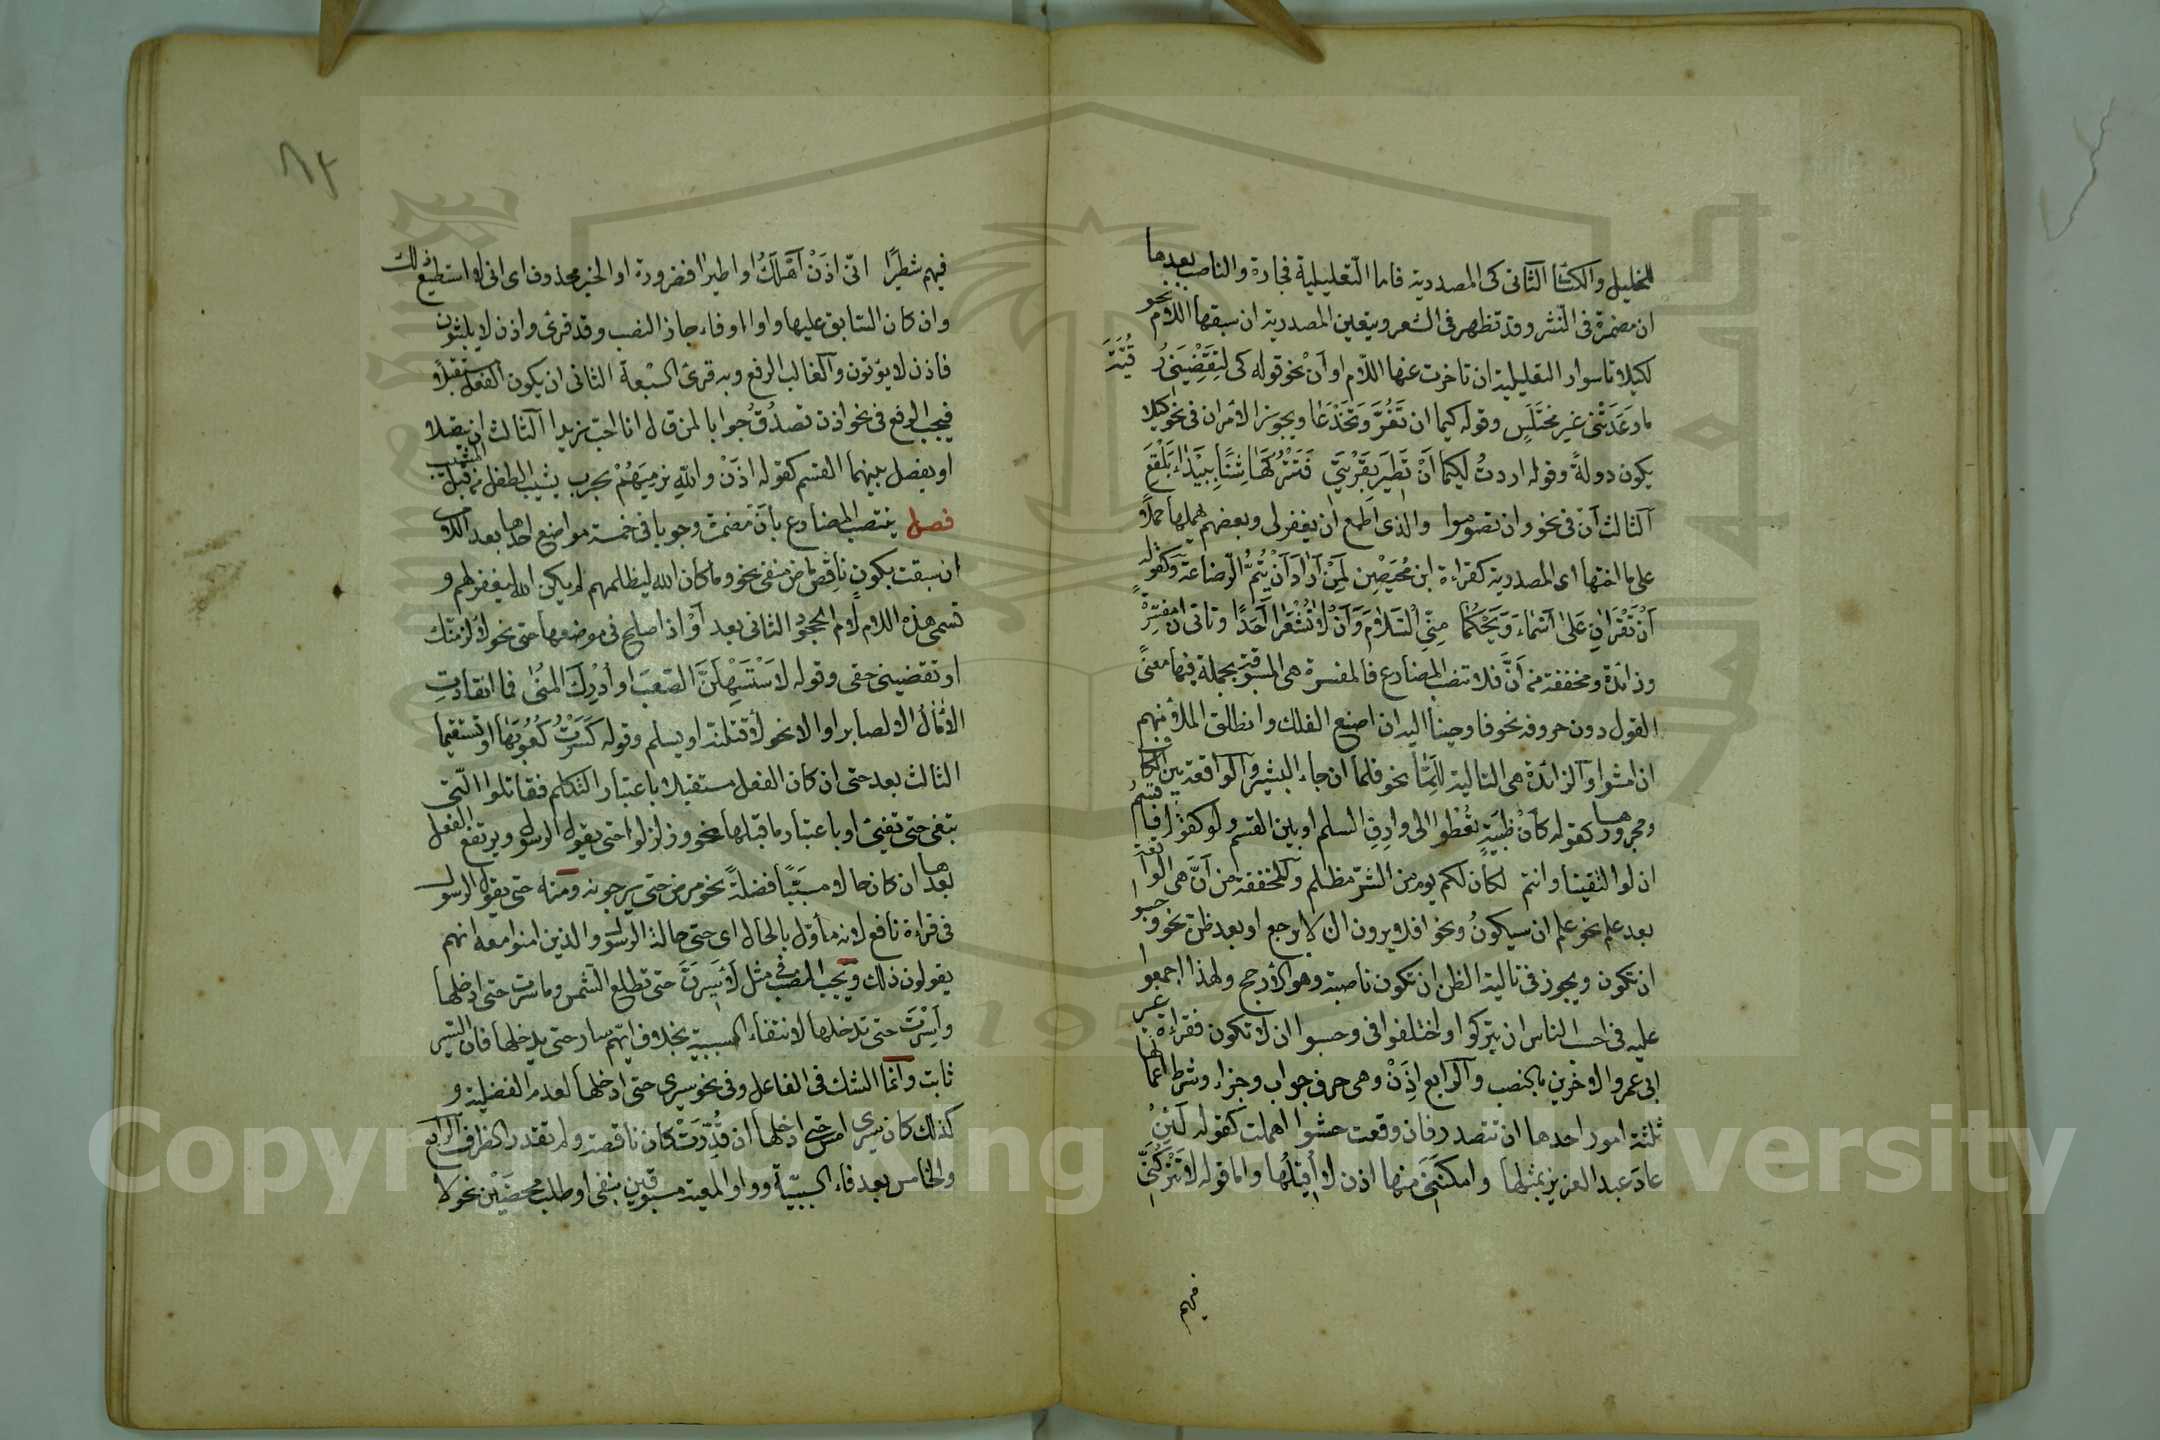 للخليل والكسّا الثانى كى المصدرية فاما التعليلية فجارة والناصب بعدها
ان مضمرة فى النثر وقد تظهر فى الشعر ويتعين المصدرية ان سبقها اللام نحو
لكيلا تاسوا والتعليلية ان تاخرت عنها اللام او أنْ نحو قوله كى لتقضينى رُقَيَّةُ
ما وَعَدَتْنى غير مختَلَسٍ وقوله كيما ان تَغُرَّ وتَخْدَعَا ويجوز الامران فى نحو كيلا
يكون دولةً وقوله اردتُ لكيما اَنْ تَطيرَ بِقِرْبَتى فتتركها شَنًّا بِبَيْداءَ بَلْقَعِ
الثالث اَن فى نحو وان تصوموا والذى اطمع ان يغفرلى وبعضهم يهملها حملًا
على ما اختها اى المصدرية كقراءة ابن مُحَيصِن لِمَنْ اَرَادَ اَنْ يُتِمُّ الرّضاعة وكقوله
اَنْ تَقْرَانِ عَلىٰ اَسْمَاءَ وَيْحَكُما مِنِّى السَّلَامَ وَاَنْ لا تُشْعِرَا اَحَدًا وتاتى ان مفسِّرةً
وزائدة ومخففة من اَنَّ فلا تنصب المضارع فالمفسرة هى المسبوقة بجملة فيها معنىٰ
القول دون حروفه نحو فاوحينا اليه ان اصنع الفلك وانطلق الملأ منهم
ان امشوا والزائدة هى التالية لِلَمَّا نحو فلما ان جاء البشير والواقعة بين الكاف
ومجرورها كقوله كأنْ ظبيةٍ تعطو الى وارِقِ السلم او بين القسم ولو كقوله فاُقسمُ
ان لو التقينا وانتم لكان لكم يوم من الشرّ مظلم والمخففة من اَنَّ هى الواقعة
بعد علم نحو علم ان سيكونُ ونحو افلا يرون ان لا يرجع او بعد ظن نحو وحسبوا
ان تكون ويجوز فى تالية الظن ان تكون ناصبة وهو الارجح ولهذا اجمعوا
عليه فى احسب الناس ان يتركوا واختلفوا فى وحسبوا ان لا تكون فقراءة غير
ابى عمرو والاخوين بالنصب والرابع اِذَنْ وهى حرف جواب وجزاء وشرط اعمالها
ثلثة امور احدها ان تتصدر فان وقعت حشوا اهملت كقوله لَئِنْ
عادَ عبد العزيز بمثلها وامكنَنى منها اذن لا اُقيلُها واما قوله لا تَتْرُكَنِّى
فيهم
٨٢
فيهم شطيرًا انّى اذَنْ اَهْلِكَ او اطيرا فضرورة او الخبر محذوف اى انى لا استطيع ذلك
وان كان السابق عليها واوا او فاء جاز النصب وقد قرئ واذن لا يلبثون
فاذن لا يؤتون والغالب الرفع وبه قرئ السبعة الثانى ان يكون الفعل مستقبلًا
فيجب الرفع فى نحو اذن تصدُقُ جوابا لمن قال انا احب زيدا الثالث ان يتصلا
او يفصل بينهما القسم كقوله اذَنْ واللهِ نرمِيَهُمْ بحرب يشيب الطفل من قبل المشيب
فصل ينتصب المضارع بأن مضمرة وجوبا فى خمسة مواضع احدها بعد اللام
ان سبقت بكونٍ ناقصٍ ماضٍ منفى نحو وما كان الله ليظلمهم لم يكن الله ليغفر لهم و
تسمى هذه اللام لام الجحود الثانى بعد اَوْ اذا صلح فى موضعها حتى نحو لالزمنّك
او تقضينى حقى وقوله لاَسْتَسْهِلَنَّ الصعبَ او اُدْرِكَ المُنىٰ فما انقادتِ
الاٰمالُ الا لصابر او الا نحو لأقتلنه او يسلم وقوله كَسَرْتُ كُعُوبَهَا او تستقيما
الثالث بعد حتى ان كان الفعل مستقبلا باعتبار التكلم فقاتلوا الّتى
تبغى حتى تفئ او باعتبار ما قبلها نحو وزلزلوا حتى يقول الرسول ويرتفع الفعل
بعدها ان كان حالا مسبَّبًا فضلةً نحو مرض حتى يرجونه ومنه حتى يقول الرسول
فى قراءة نافع لانه مأوّل بالحال اى حتى حالة الرسول والذين امنوا معه انهم
يقولون ذلك ويجب النصب فى مثل لاَسيرَنَّ حتى تطلع الشمس وما سرت حتى ادخلها
واَسِرْتَ حتى تدخلها لانتفاء السببية بخلاف ايّهم سار حتى يدخلها فان السير
ثابت وانما الشك فى الفاعل وفى نحو سيرى حتى ادخلها لعدم الفضلية و
كذلك كان سيرى امس حتى ادخلها ان قُدِّرَتْ كان ناقصة ولم تقدر الظرف الرابع
والخامس بعد فاء السببيّة وواو المعية مسبوقين بنفى او طلب محضَيْن نحو لا
Copyright © King Saud University
جامعة الملك سعود